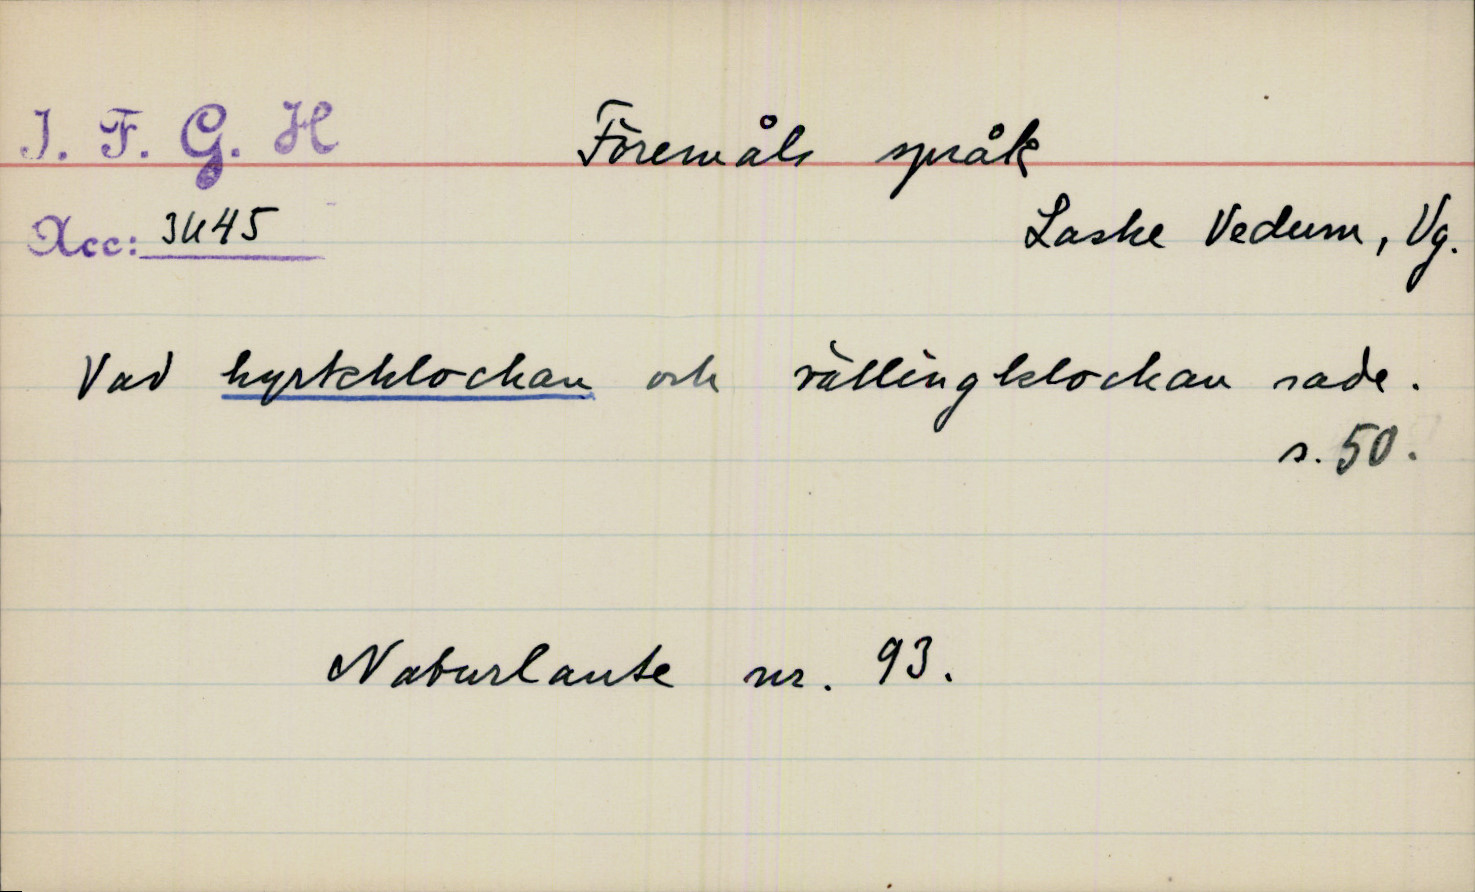 I. F. G. H
Föremåls språk
Acc: 3445
Laske Vedum, Vg.
Vad kyrkklockan och vällingklockan sade.
s. 50.
Naturlaute nr. 93.